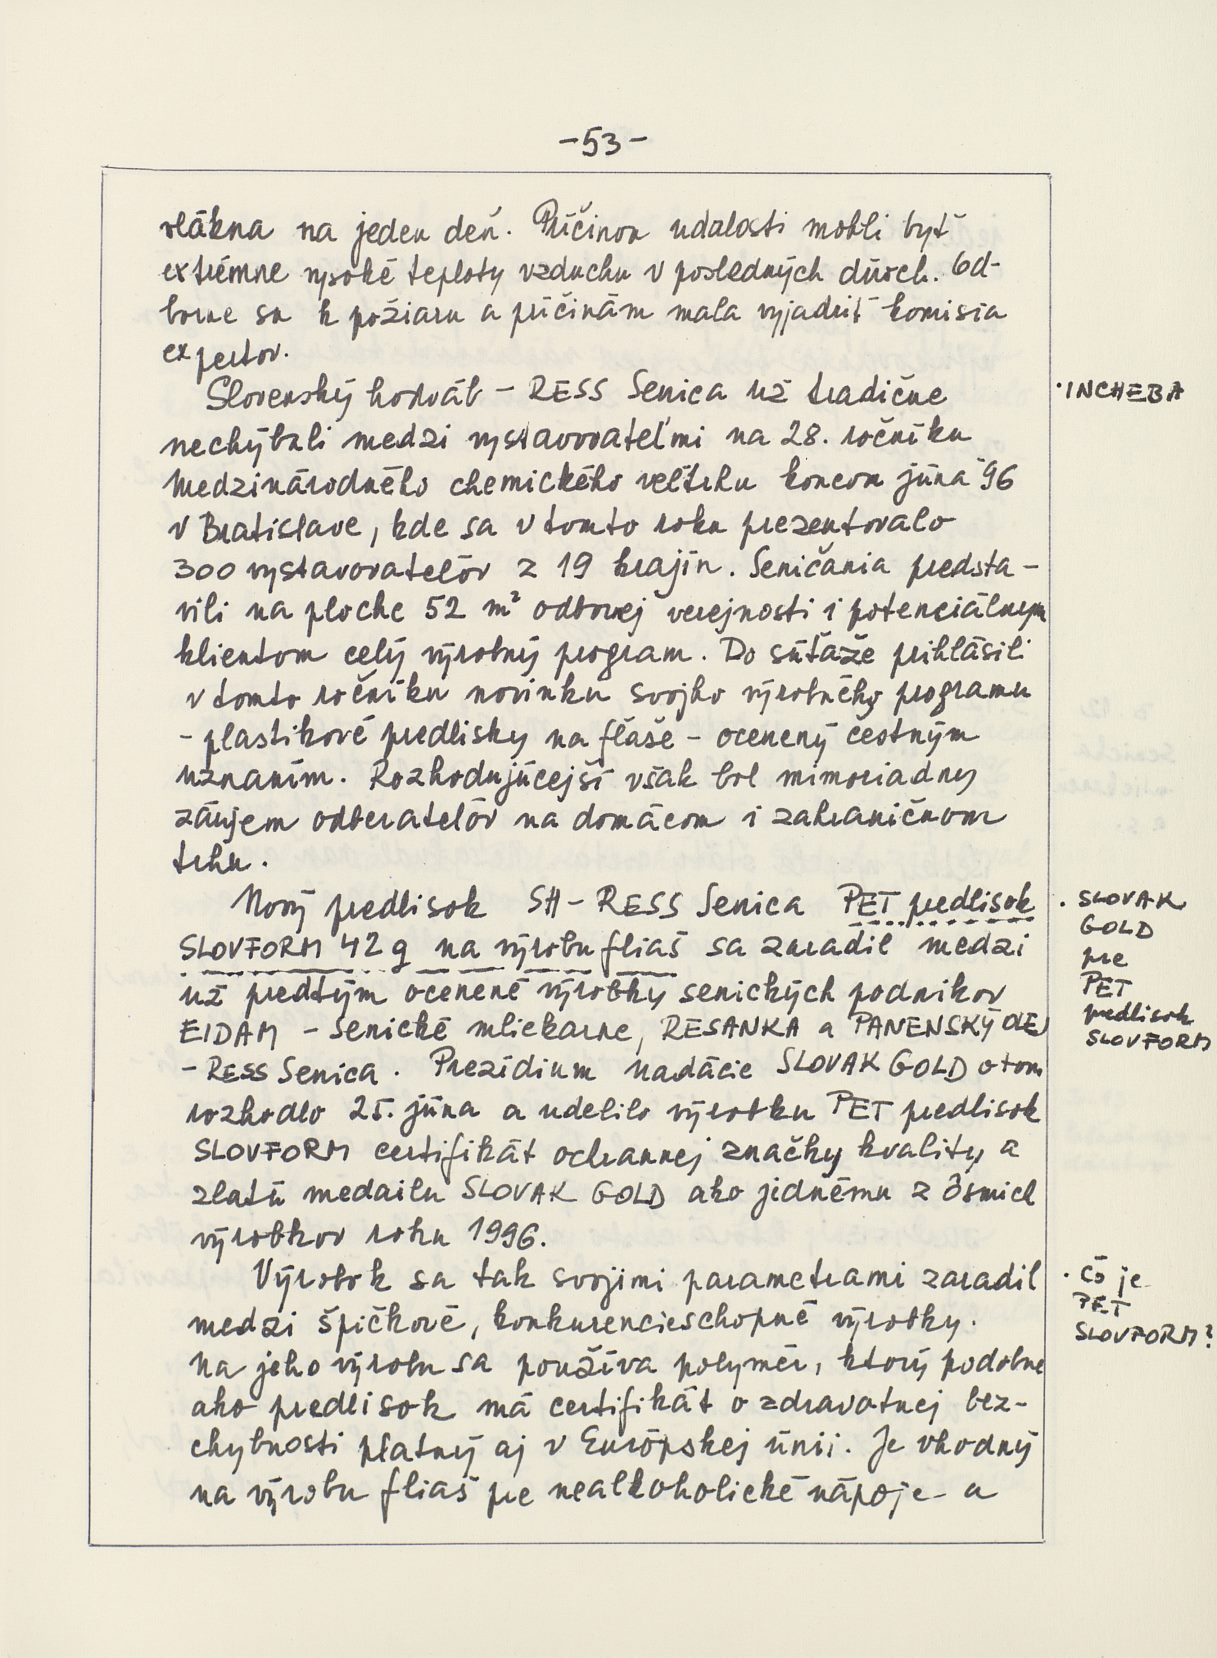 -53-
vlákna na jeden deň. Príčinou udalosti mohli byť
extrémne vysoké teploty vzduchu v posledných dňoch. Od-
borne sa k požiaru a príčinám mala vyjadriť komisia
expertov.
Slovenský hodváb - RESS Senica už tradične
nechýbali medzi vystavovateľmi na 28. ročníku
Medzinárodného chemického veľtrhu koncom júna '96
v Bratislave, kde sa v tomto roku prezentovalo
300 vystavovateľov z 19 krajín. Seničania predsta-
vili na ploche 52 m² odbornej verejnosti i potenciálnym
klientom celý výrobný program. Do súťaže prihlásili
v tomto ročníku novinku svojho výrobného programu
- plastikové predlisky na fľaše - ocenený čestným
uznaním. Rozhodujúcejší však bol mimoriadny
záujem odberateľov na domácom i zahraničnom
trhu.
Nový predlisok SH - RESS Senica PET predlisok
SLOVFORM 42 g na výrobu fliaš sa zaradil medzi
už predtým ocenené výrobky senických podnikov
EIDAM - Senické mliekarne, RESANKA a PANENSKÝ OLEJ
- RESS Senica. Prezídium nadácie SLOVAK GOLD o tom
rozhodlo 25. júna a udelilo výrobku PET predlisok
SLOVFORM certifikát ochrannej značky kvality a
zlatú medailu SLOVAK GOLD ako jednému z ôsmich
výrobkov roku 1996.
Výrobok sa tak svojimi parametrami zaradil
medzi špičkové, konkurencieschopné výrobky.
Na jeho výrobu sa používa polymér, ktorý podobne
ako predlisok má certifikát o zdravotnej bez-
chybnosti platný aj v Európskej únii. Je vhodný
na výrobu fliaš pre nealkoholické nápoje a
· INCHEBA
· SLOVAK
GOLD
pre
PET
predlisok
SLOVFORM
· Čo je
PET
SLOVFORM?